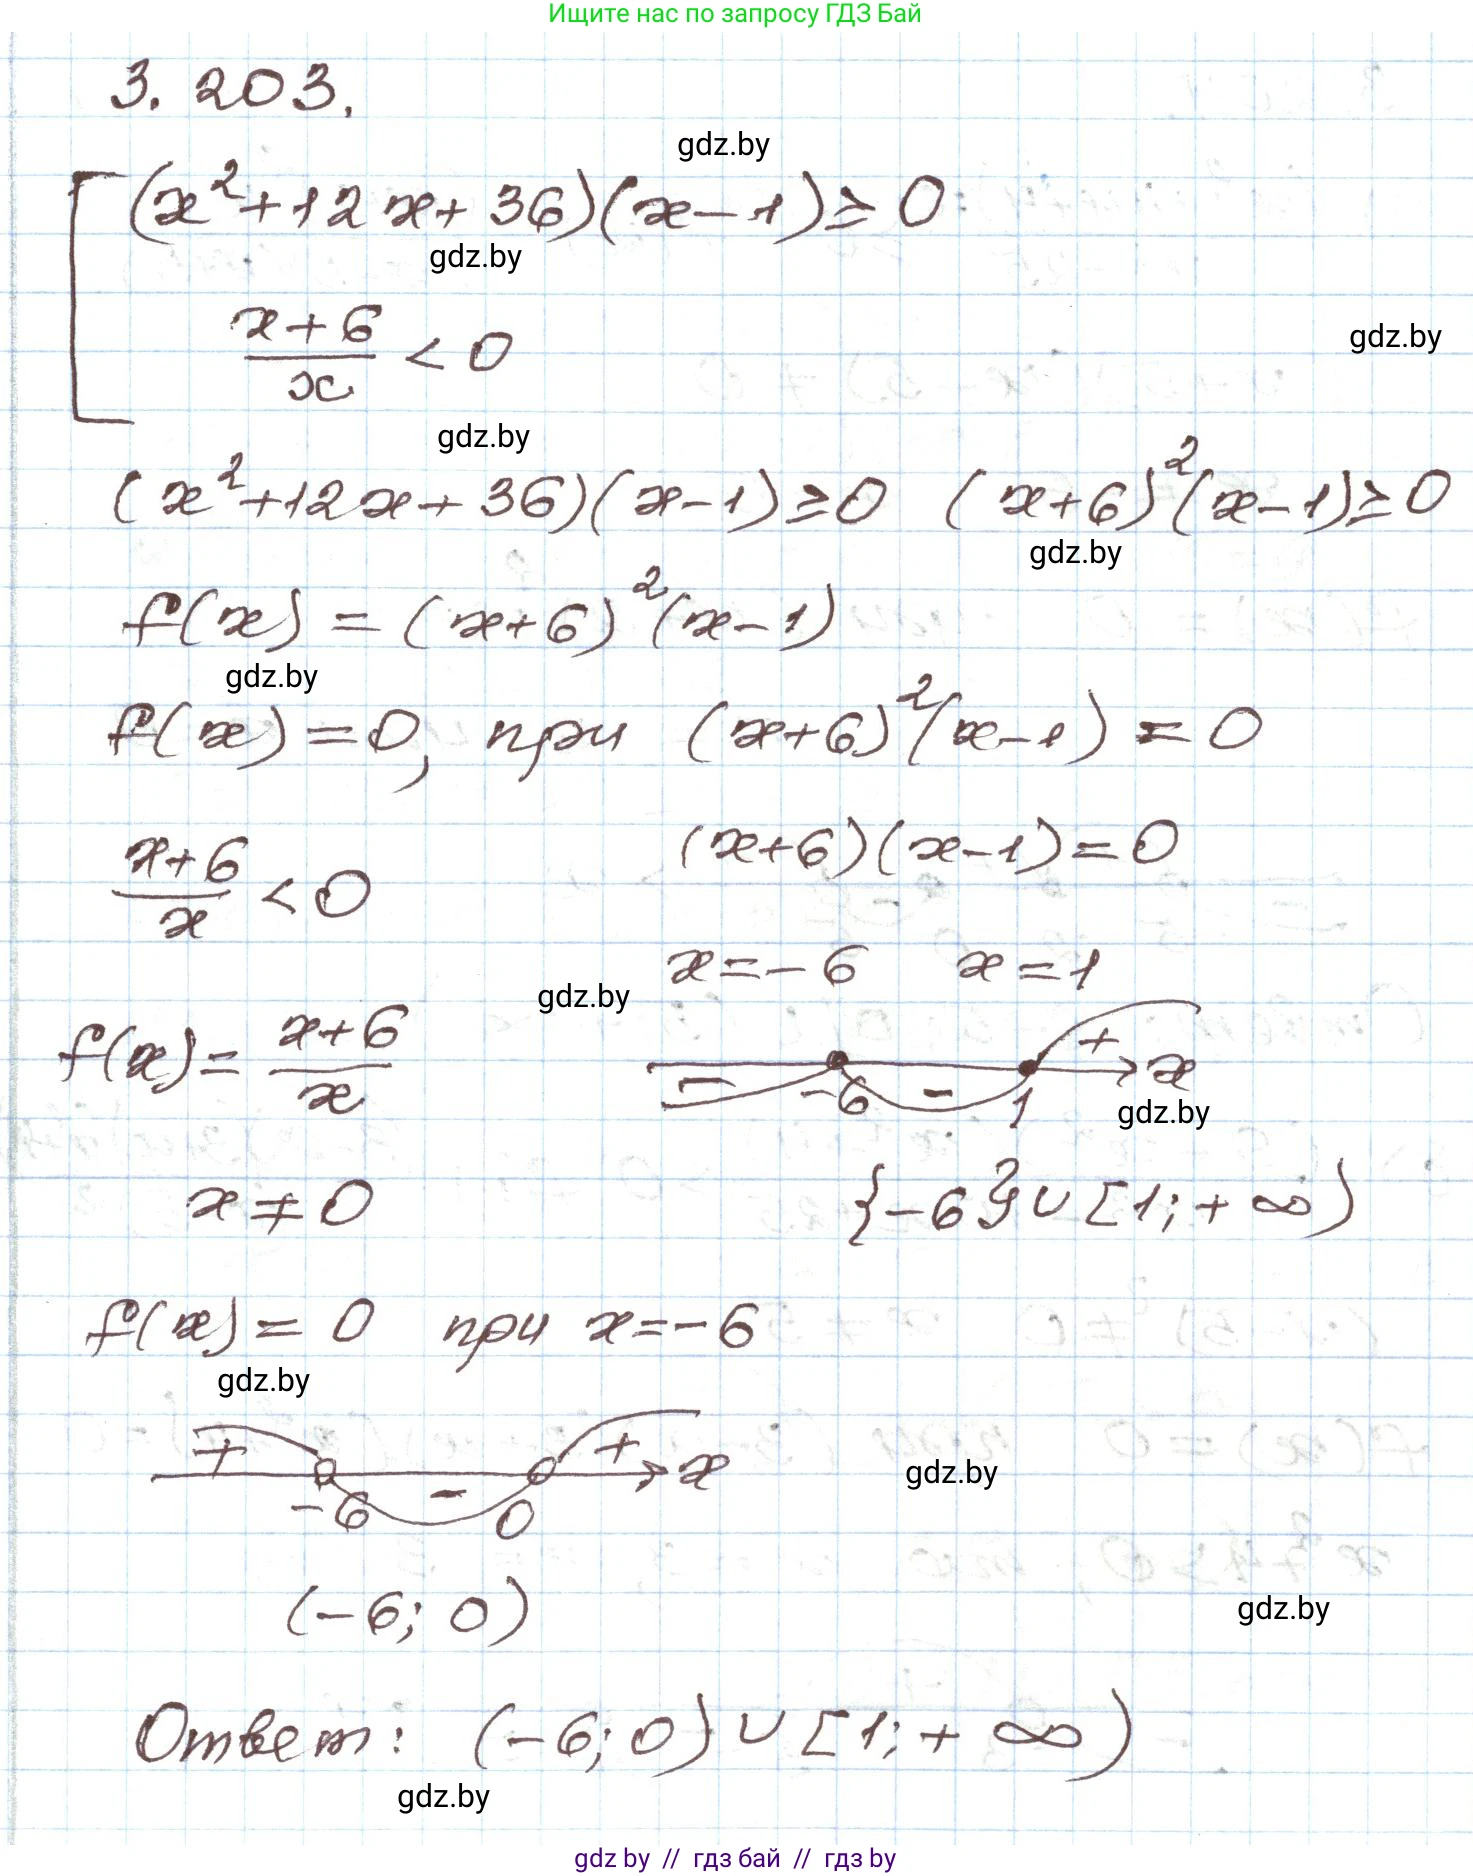 Ищите нас по запросу ГДЗ Бай
3. 203.
gdz.by
(x²+12x+36)(x-1)≥0
gdz.by
x+6/x < 0
gdz.by
gdz.by
(x²+12x+36)(x-1)≥0 (x+6)²(x-1)≥0
gdz.by
f(x) = (x+6)²(x-1)
gdz.by
f(x)=0, при (x+6)²(x-1) = 0
x+6/x < 0 (x+6)(x-1)=0
x=-6 x=1
gdz.by
f(x)= x+6/x
- -6 - 1 + x
gdz.by
x≠0 {-6}∪[1;+∞)
f(x)= 0 при x=-6
gdz.by
+ -6 - 0 + x
gdz.by
(-6; 0)
gdz.by
Ответ: (-6; 0)∪[1; +∞)
gdz.by
gdz by // гдз бай // гдз by